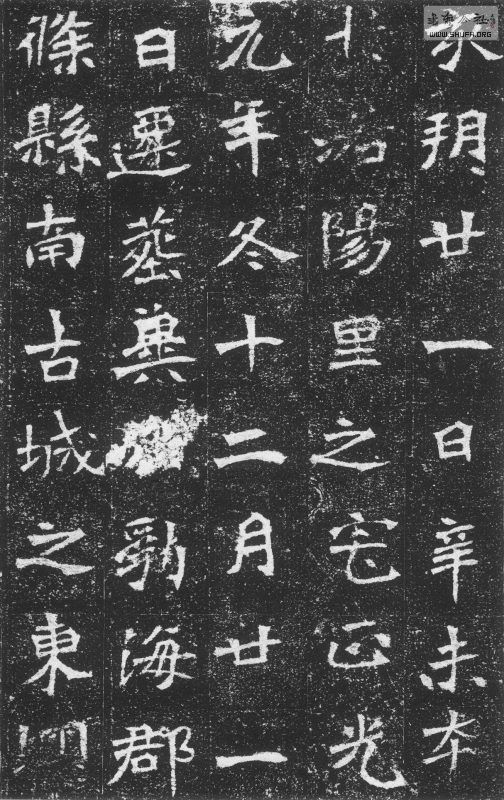 亥朔廿一日辛未卒
洛陽里之宅正光
元年冬十二月廿一
日遷葬冀勃海郡
條縣南古城之東
WWW.SHUFA.ORG